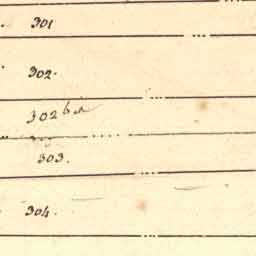 301
302.
302 bis
303.
304.